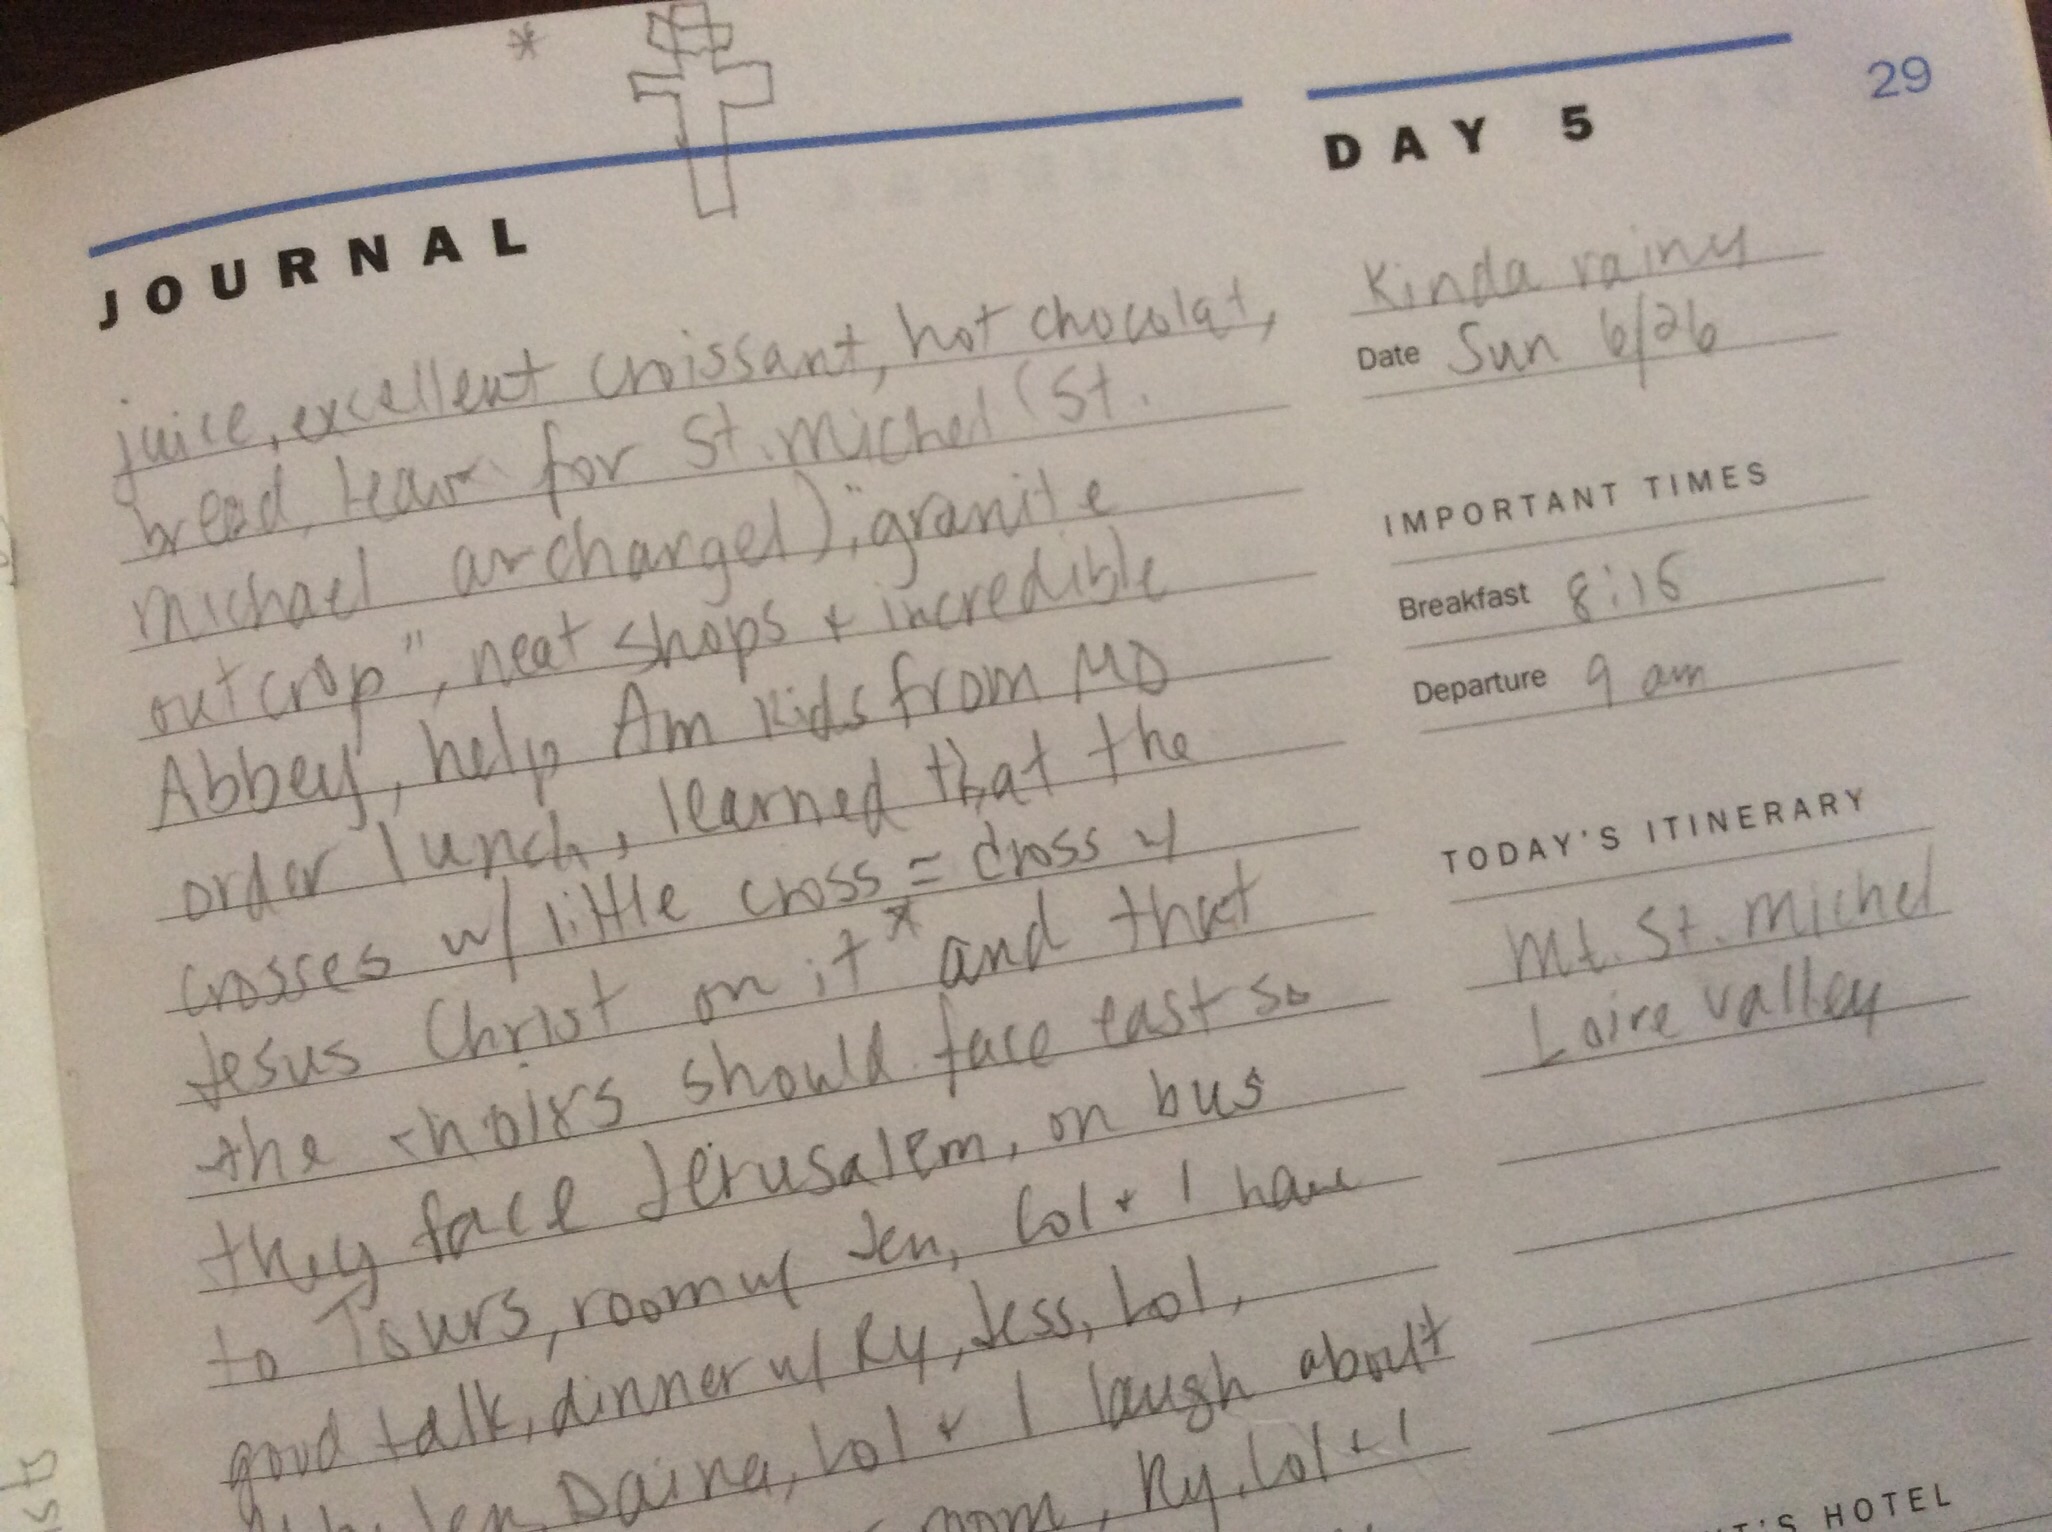 *
29
JOURNAL
DAY 5
juice, excellent croissant, hot chocolat,
bread, leave for St. Michel (St.
Michael archangel), "granite
outcrop", neat shops + incredible
Abbey, help Am kids from MD
order lunch, learned that the
crosses w/ little cross = cross w/
Jesus Christ on it* and that
the choirs should face east so
they face Jerusalem, on bus
to Tours, room w/ Jen, Lol + I have
good talk, dinner w/ Ry, Jess, Lol,
Jen Daina, Lol + I laugh about
room, Ry, Lol + I
Kinda rainy
Date Sun 6/26
IMPORTANT TIMES
Breakfast 8:15
Departure 9 am
TODAY'S ITINERARY
Mt. St. Michel
Loire Valley
T'S HOTEL